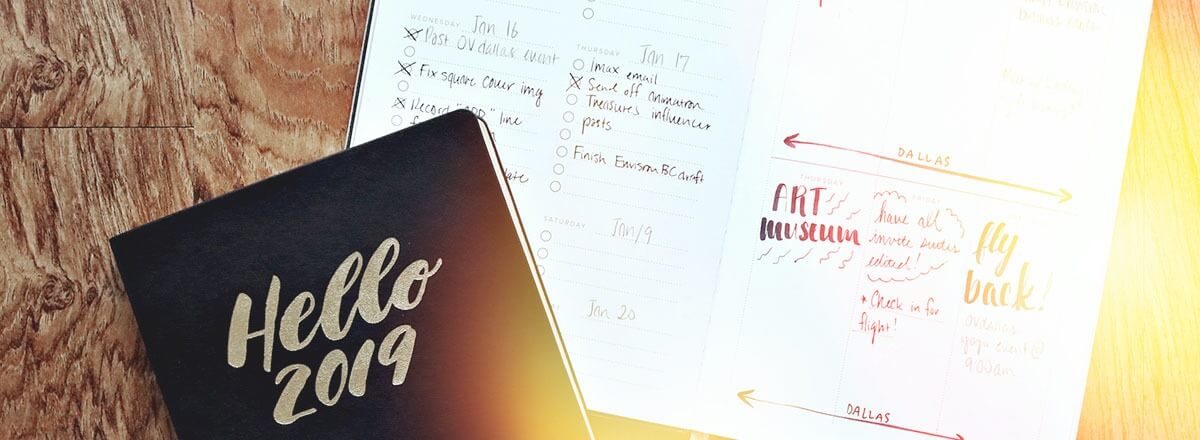 WEDNESDAY Jan 16
Post OVdallas event
Fix square cover img
Record "APP" line
THURSDAY Jan 17
Imax email
Send off animation
Treasures influencer
posts
Finish Envision BC draft
SATURDAY Jan 19
Jan 20
Hello
2019
DALLAS
THURSDAY
ART
museum
FRIDAY
have all
invite suites
edited!
* Check in for
flight!
fly
back!
OVdallas
yoga event @
9:00am
DALLAS